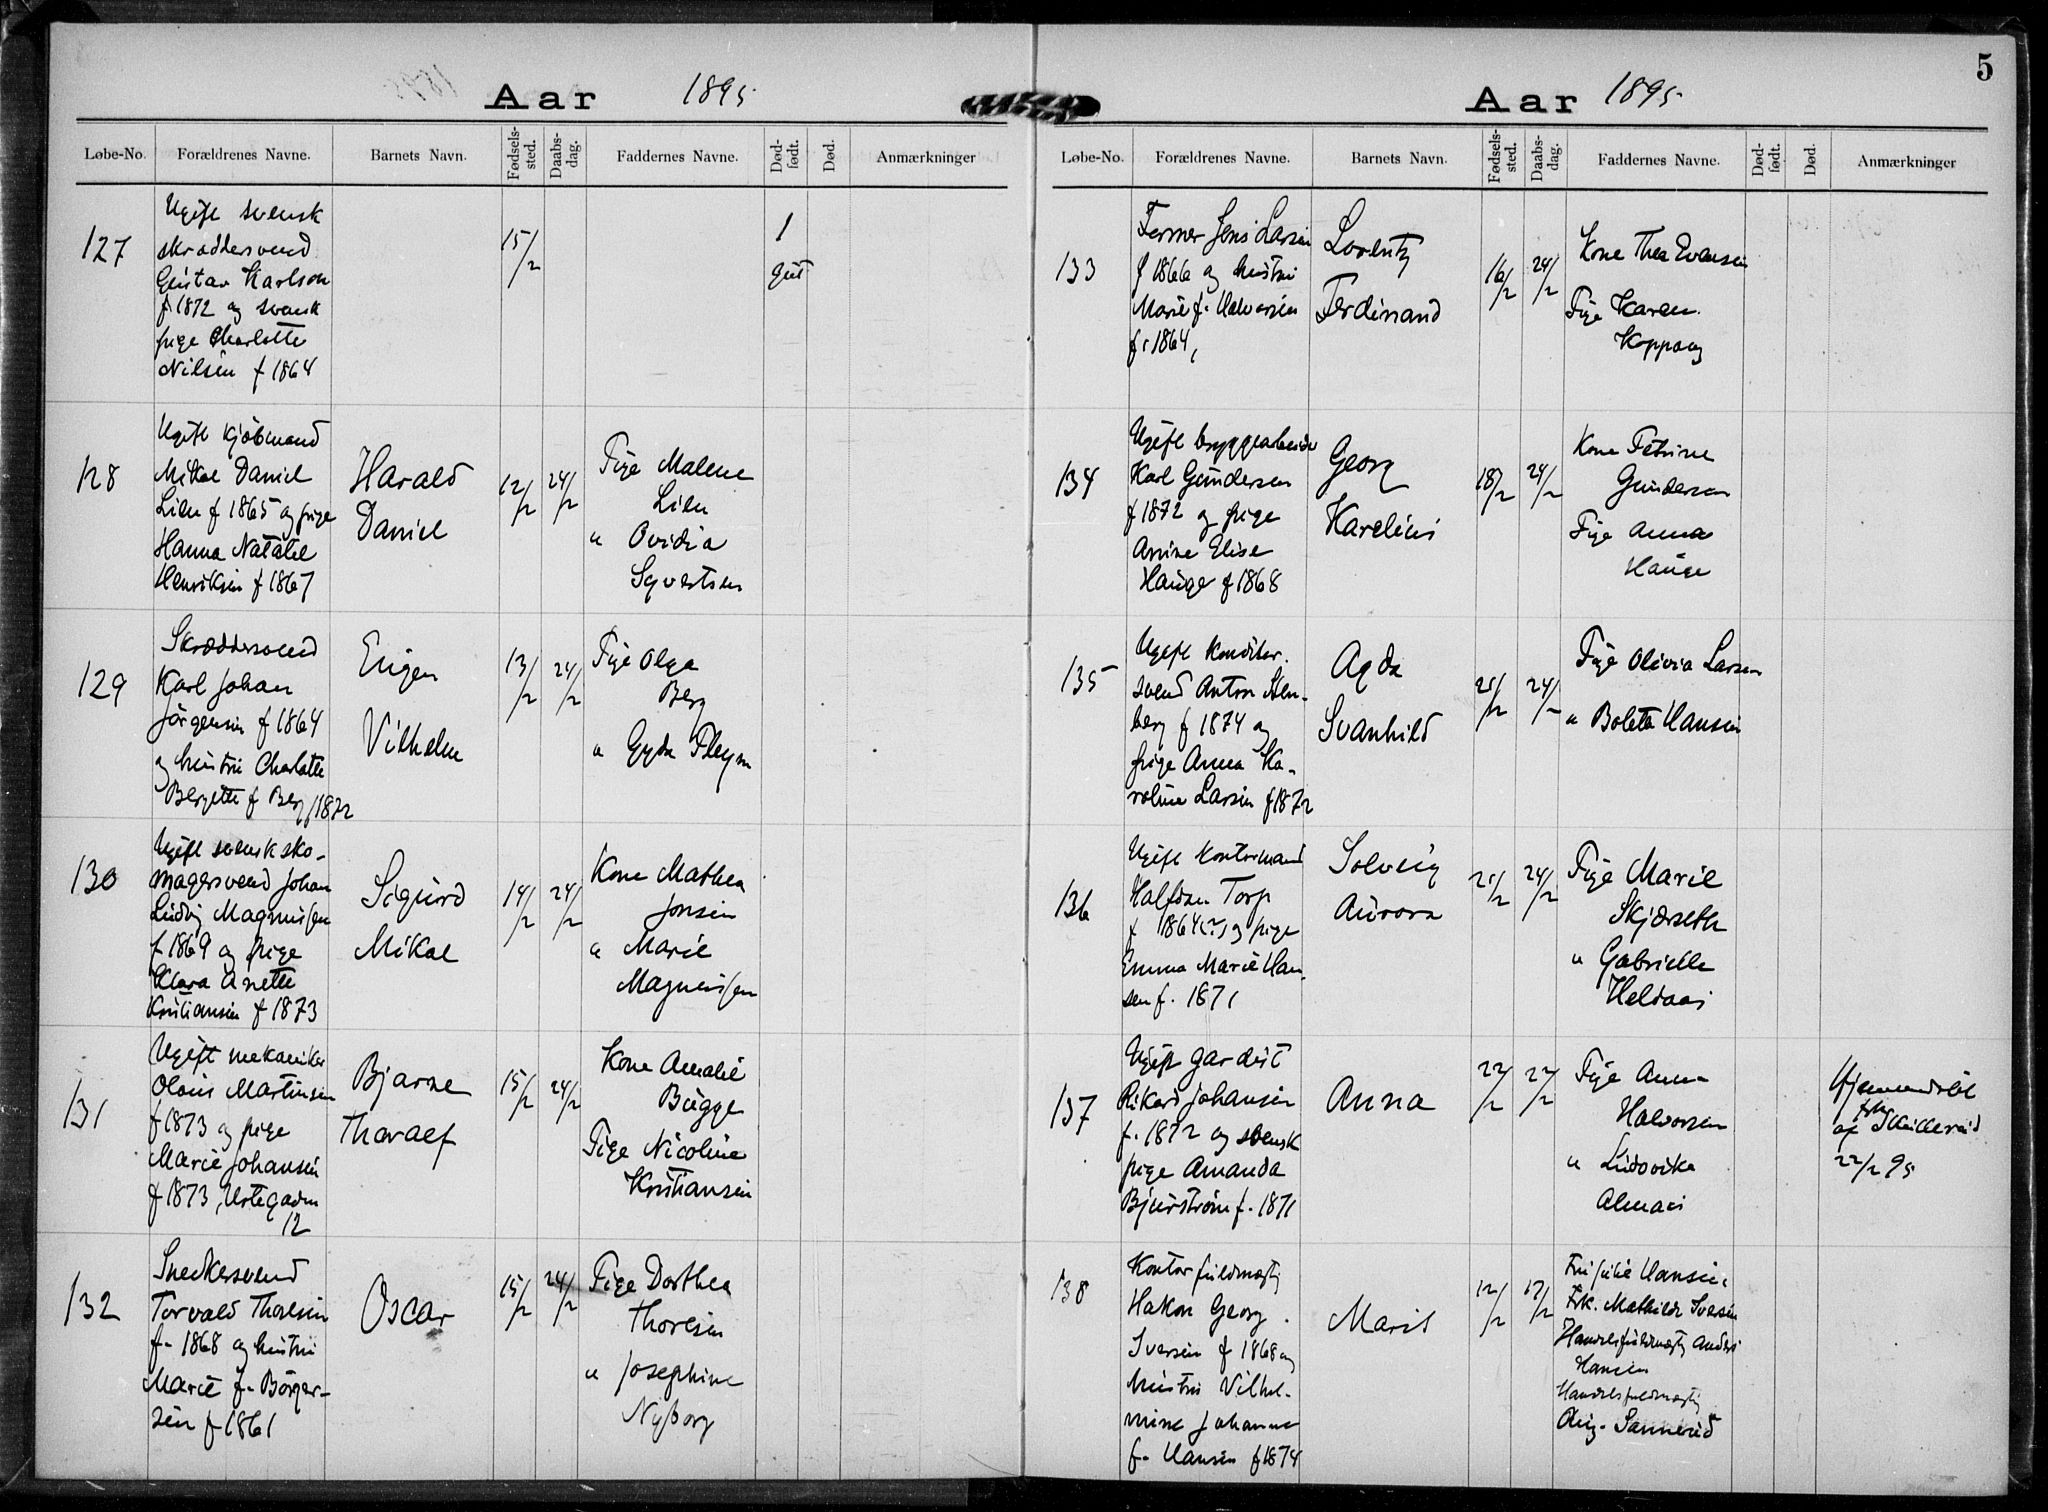 Aar 1895
Løbe-No. Forældrenes Navne. Barnets Navn. Fødsels-sted. Daabs-dag. Faddernes Navne. Død-født. Død. Anmærkninger
127
Ugift svensk
skræddersvend
Gustav Karlson
f. 1872 og svensk
pige Charlotte
Nilsen f 1864
15/2
1
gut
128
Ugift kjøbmand
Mikal Daniel
Lien f 1865 og pige
Hanna Natalie
Henriksen f 1867
Harald
Daniel
12/2
24/2
Pige Malene
Lien
" Ovidia
Syvertsen
129
Skræddersvend
Karl Johan
Jörgensen f 1864
og hustru Charlotte
Bergette f Berg f 1872
Eugen
Vilhelm
13/2
24/2
Pige Olga
Berg
" Gyda Pleym
130
Ugift svensk sko-
magersvend Johan
Ludvig Magnussen
f 1869 og pige
Klara Anette
Kristiansen f 1873
Sigurd
Mikal
14/2
24/2
Kone Mathea
Jonsen
" Marie
Magnussen
131
Ugift mekaniker
Olaus Martinsen
f 1873 og pige
Marie Johansen
f 1873, Urtegaden
12
Bjarne
Thoralf
15/2
24/2
Kone Amalie
Bugge
Pige Nicoline
Kristiansen
132
Snekersvend
Torvald Thoresen
f. 1868 og hustru
Marie f. Börger-
sen f 1861
Oscar
15/2
24/2
Pige Dorthea
Thoresen
" Josephine
Nyborg
5
Aar 1895
Løbe-No. Forældrenes Navne. Barnets Navn. Fødsels-sted. Daabs-dag. Faddernes Navne. Død-født. Død. Anmærkninger
133
Former Jens Larsen
f 1866 og hustru
Marie f. Halvorsen
f. 1864,
Lorentz
Ferdinand
16/2
24/2
Kone Thea Evensen
Pige Karen
Koppang
134
Ugift bryggearbeider
Karl Gundersen
f 1872 og pige
Anine Elise
Hauge f 1868
Georg
Karelius
18/2
24/2
Kone Petrine
Gundersen
Pige Anna
Hauge
135
Ugift konditor-
svend Anton Sten-
berg f 1874 og
pige Anna Ka-
roline Larsen f 1872
Agda
Svanhild
21/2
24/2
Pige Olivia Larsen
" Bolette Hansen
136
Ugift kontormand
Halfdan Torp
f 1864(?) og pige
Emma Marie Han-
sen f. 1871
Solveig
Aurora
21/2
24/2
Pige Marie
Skjærseth
" Gabrielle
Heldaas
137
Ugift gardist
Rikard Johansen
f. 1872 og svensk
pige Amanda
Bjurström f. 1871
Anna
22/2
22/2
Pige Anna
Halvorsen
" Ludovika
Almaas
Hjemmedøbt
af
22/2 95
138
Kontorfuldmægtig
Hakon Georg
Iversen f 1868 og
hustru Vilhel-
mine Johanne
f. Hansen f 1874
Marit
12/2
17/2
Fru Julie Hansen.
Frk. Mathilde Iversen
Handelsfuldmægtig Anders
Hansen
Handelsfuldmægtig
Aug. Sannerud